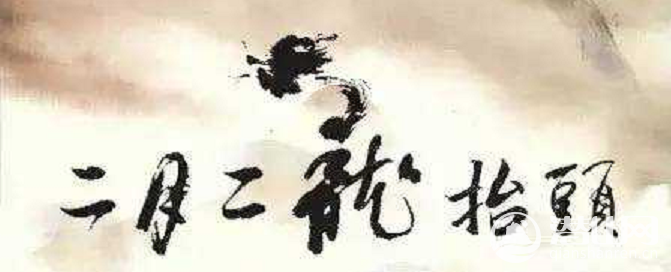 二月二龍抬頭